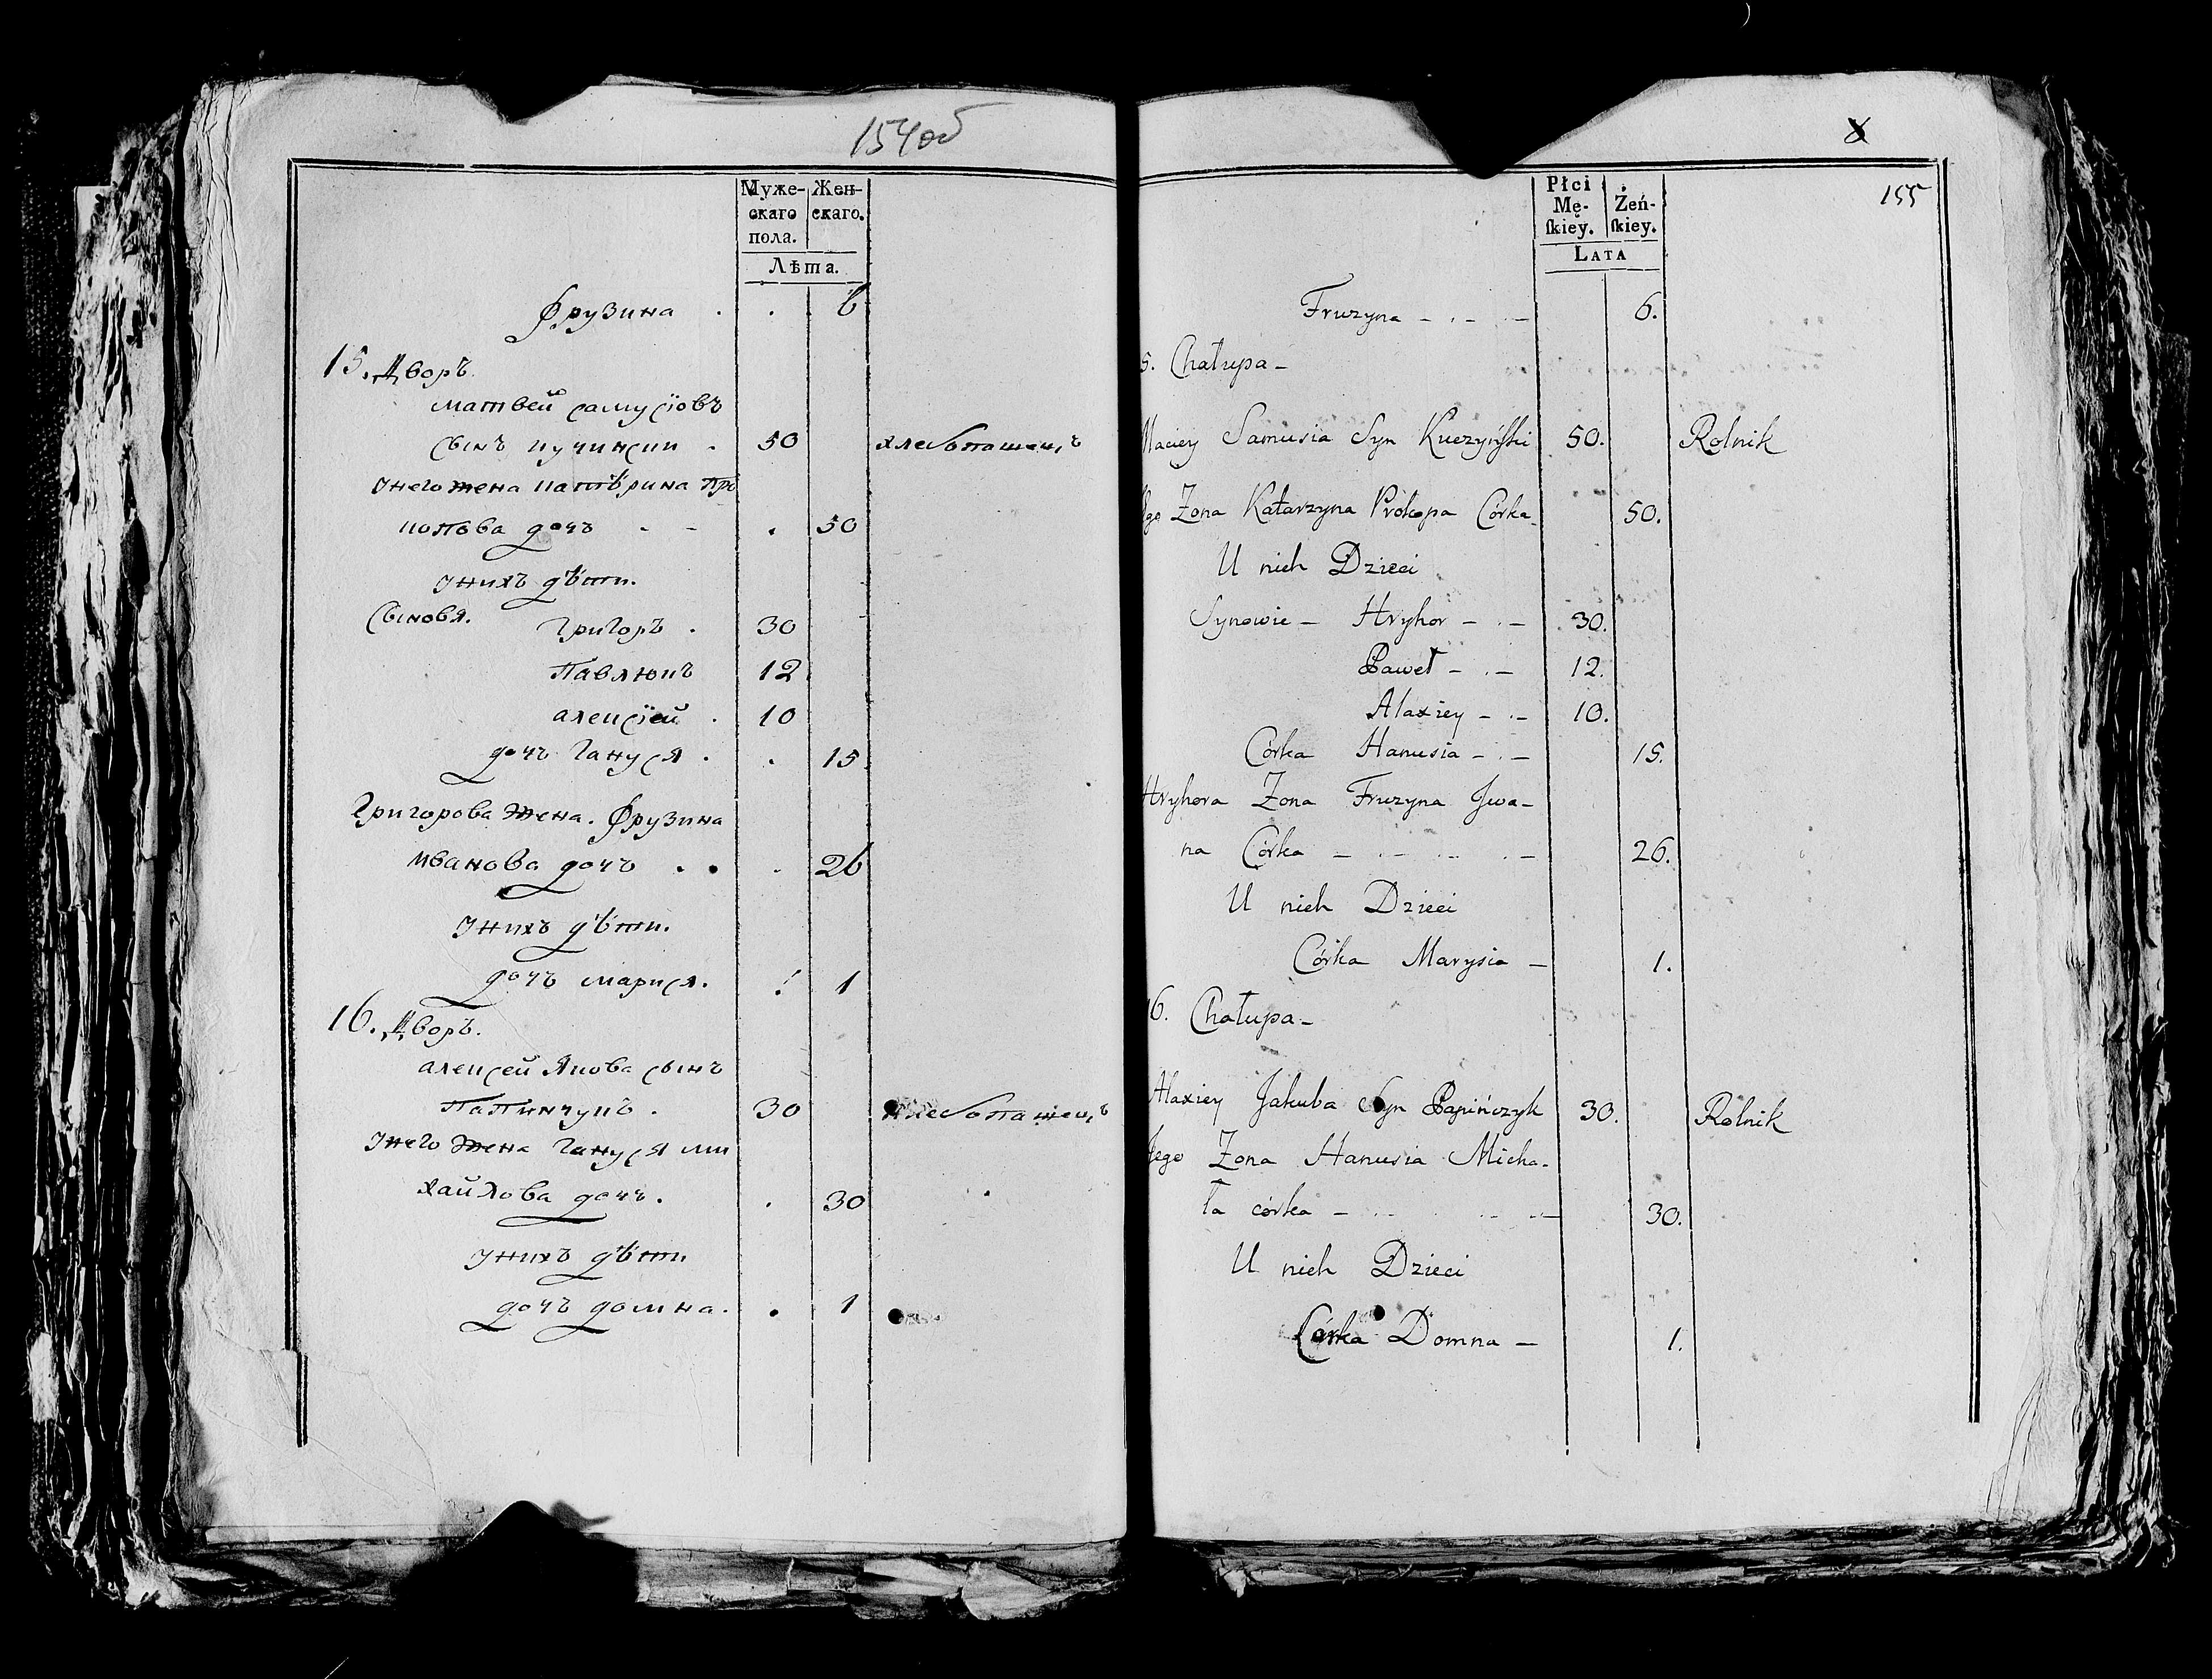 154об
Муже-
скаго
пола.
Жен-
скаго.
Лѣта.
Фрузина . . 6
15. Дворъ.
матвей самусіовъ
сынъ кучински . 50 хлебопашецъ
Унего жена катѣрина Про
копова дочъ - - . 50
Унихъ дѣти.
Сыновя. Григоръ . 30
Павлюкъ 12
алексіей . 10
дочъ Гануся . . 15
Григорова жена. Фрузина
иванова дочъ . . . 26
Унихъ дѣти.
дочъ марися. . 1
16. Дворъ.
алексей Якова сынъ
Папинчукъ . 30 хлебопашецъ
Унего жена Гануся ми
хайлова дочъ. . 30
Унихъ дѣти
дочъ домна. . 1
8
155
Płci
Mę-
ſkiey.
Żeń-
ſkiey.
LATA
Fruzyna - . - . - 6.
5. Chałupa -
Maciey Samusia Syn Kuczyńſki 50. Rolnik
Jego Zona Katarzyna Prokopa Córka 50.
U nich Dzieci
Synowie - Hryhor - . - 30.
Paweł - . - 12.
Alaxiey - . - 10.
Córka Hanusia - . - 15.
Hryhora Zona Fruzyna Jwa-
na Córka - . - . - . - 26.
U nich Dzieci
Córka Marysia - 1.
16. Chałupa -
Alaxiey Jakuba Syn Papińczyk 30. Rolnik
Jego Zona Hanusia Micha-
ła córka - . - . - . - 30.
U nich Dzieci
Córka Domna - 1.